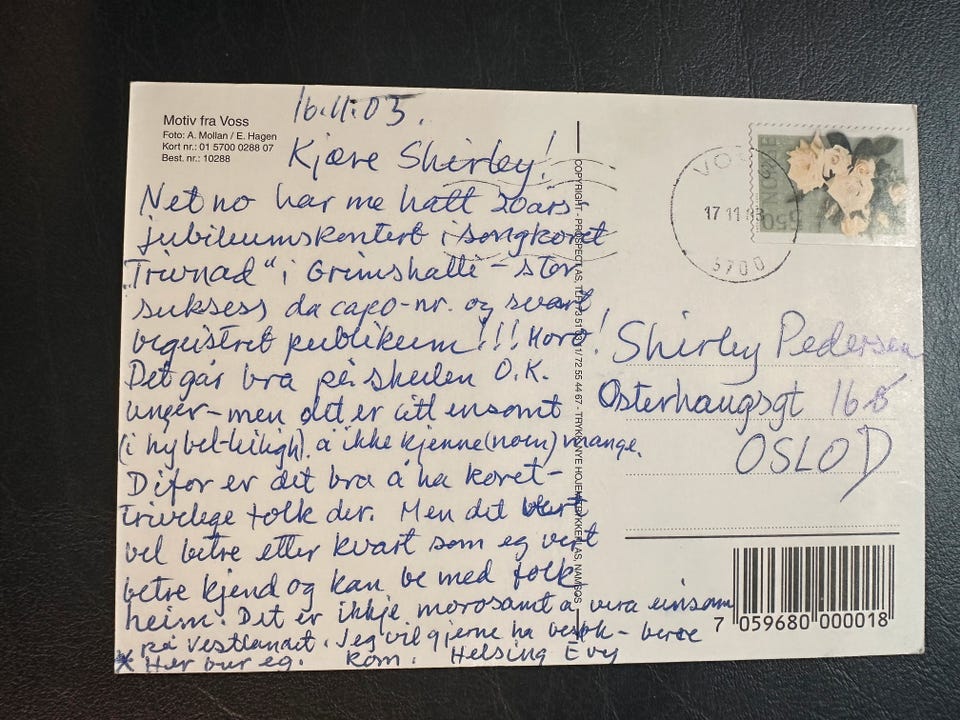 Motiv fra Voss
Foto: A. Mollan / E. Hagen
Kort nr.: 01 5700 0288 07
Best. nr.: 10288
16.11.03.
Kjære Shirley!
Net no har me hatt 20års-
jubileumskonsert i songkoret
"Trivnad" i Grimshalle - stor
suksess da capo-nr. og svært
begeistret publikum!!! Moro!
Det går bra på skulen O.K.
unger - men det er litt ensomt
(i hybel-leiligh). å ikke kjenne (noen) mange.
Difor er det bra å ha koret -
trivelege folk der. Men det vert
vel betre etter kvart som eg vert
betre kjend og kan be med folk
heim. Det er ikkje morosamt å vera einsom
på Vestlandet. Jeg vil gjerne ha besøk - bare
* Her bur eg. kom. Helsing Evy
COPYRIGHT - PROSPECT AS, TLF.
72 55 44 67 - TRYKK: NYE HOJEM TRYKKERI AS, NAMSOS
NORGE
550
VOSS
17 11 03
5700
Shirley Pedersen
Osterhaugsgt 16
OSLO
7 059680 000018